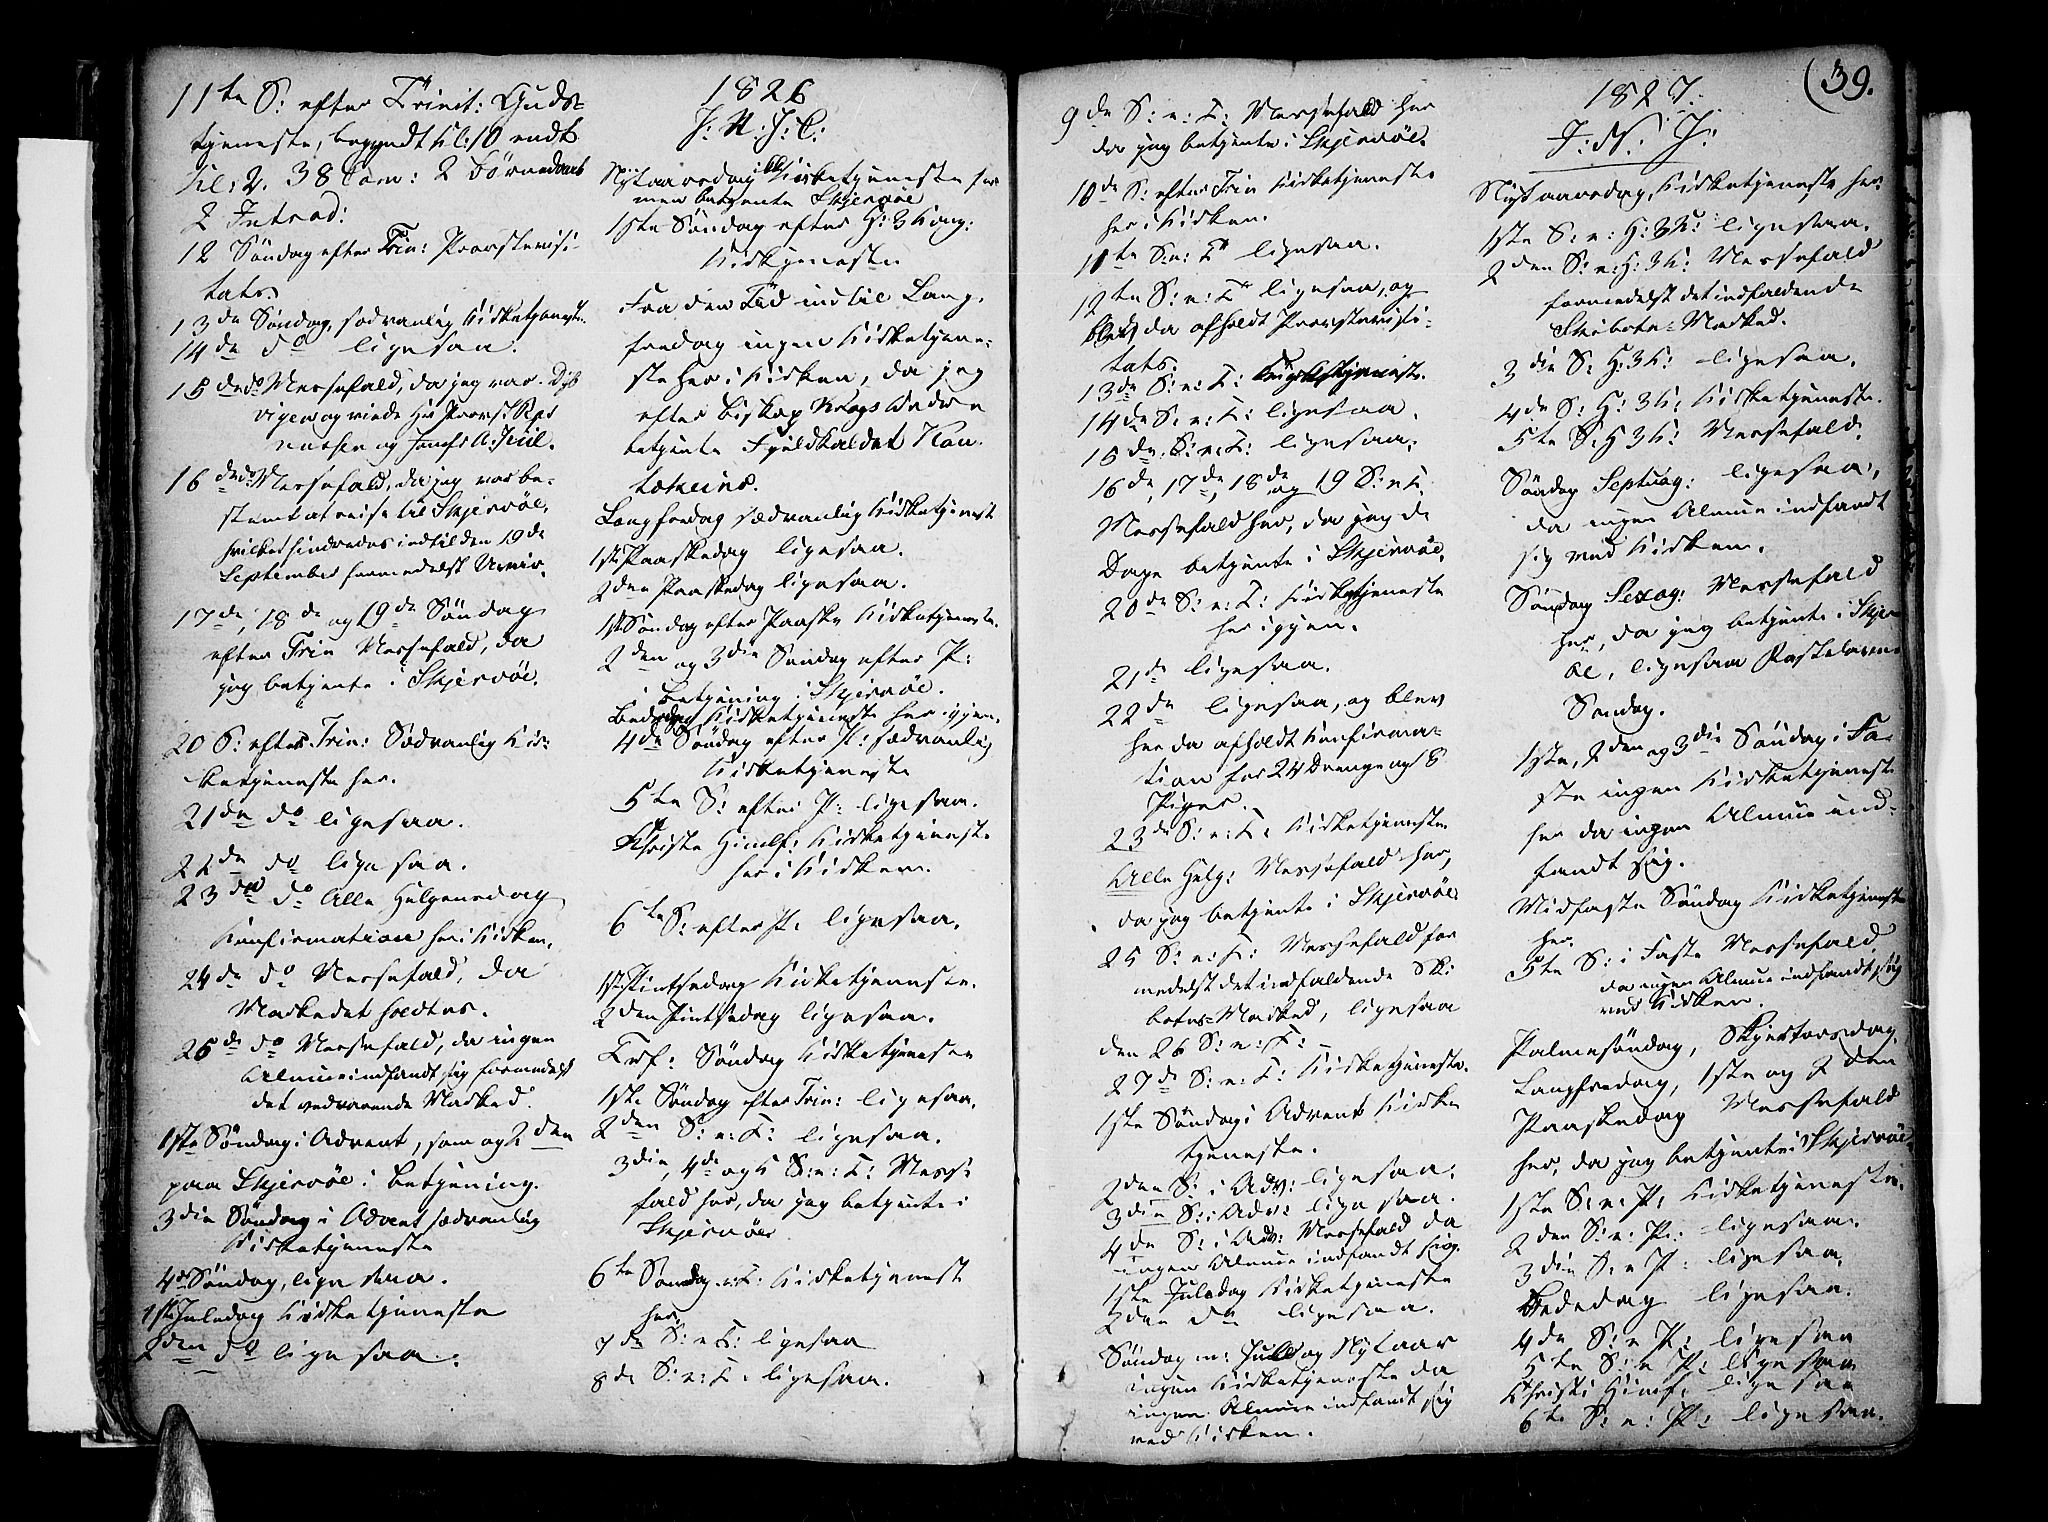 11te S: efter Trinit: Guds-
tjeneste, begyndt Kl: 10 endt
Kl: 2. 38 Com: 2 Børnedaab
2 Introd:
12 Søndag efter Trin: Proostevisi-
tats.
13de Søndag, sædvanlig Kirketjeneste
14de do ligesaa.
15de do Messefald, da jeg var
og viede Hr Provst
og Jomfr A. Juul.
16de do Messefald, da jeg var be-
stemt at reise til Skjervøe,
hvilket hindredes indtil den 19de
September formedelst Uveir.
17de, 18de og 19de Søndag
efter Trin Messefald, da
jeg betjente i Skjervøe.
20 S: efter Trin: Sædvanlig Kir-
ketjeneste her.
21de do ligesaa.
22de do ligesaa.
23de do Alle Helgensdag
Confirmation her i Kirken.
24de do Messefald, da
Markedet holdtes.
25de do Messefald, da ingen
Almue indfandt sig formedelst
det vedvarende Marked.
1ste Søndag i Advent, som og 2den
paa Skjervøe i Betjening.
3die Søndag i Advent sædvanlig
Kirketjeneste
4de Søndag, ligesaa.
1ste Juledag Kirketjeneste
2den do ligesaa.
1826
J: N: J: C:
Nytaarsdag ikke Kirketjeneste her
men betjente Skjervøe
1ste Søndag efter H: 3 Kong:
Kirketjeneste
Fra den Tid indtil Lang-
fredag ingen Kirketjene-
ste her i Kirken, da jeg
efter Biskop Krogs Ordre
betjente Fjeldkaldet Kau-
tokeino.
Langfredag sædvanlig Kirketjeneste
1ste Paaskedag ligesaa.
2den Paaskedag ligesaa.
1ste Søndag efter Paaske Kirketjeneste.
2den og 3die Søndag efter P:
i Betjening i Skjervøe.
Bededag Kirketjeneste her igjen.
4de Søndag efter P: sædvanlig
Kirketjeneste
5te S: efter P: ligesaa.
Christi Himlf: Kirketjeneste
her i Kirken.
6te S: efter P: ligesaa.
1ste Pintsedag Kirketjeneste.
2den Pintsedag ligesaa.
Tref: Søndag Kirketjeneste
1ste Søndag efter Trin: ligesaa.
2den S: e: T: ligesaa.
3die, 4de og 5 S: e: T: Messe-
fald her, da jeg betjente i
Skjervøe.
6te Søndag e: T: Kirketjeneste
her.
7de S: e T: ligesaa
8de S: e: T: ligesaa.
9de S: e: T: Messefald her
da jeg betjente i Skjervøe.
10de S: efter Trin Kirketjeneste
her i Kirken.
11te S: e: Tr ligesaa.
12te S: e: Tr ligesaa, og
blev da afholdt Proostevisi-
tats.
13de S: e: T:
14de S: e: T: ligesaa.
15de S: e: T: ligesaa.
16de, 17de, 18de og 19 S: e T:
Messefald her, da jeg de
Dage betjente i Skjervøe.
20de S: e: T: Kirketjeneste
her igjen.
21de ligesaa.
22de ligesaa, og blev
her da afholdt Confirma-
tion for 24 Drenge og 8
Piger.
23de S: e: T: Kirketjeneste.
Alle Helg: Messefald her,
da jeg betjente i Skjervøe
25 S: e: T: Messefald for
medelst det indfaldende Ski-
botns-Marked, ligesaa
den 26 S: e: T:
27de S: e: T: Kirketjeneste.
1ste Søndag i Advent Kirke
tjeneste.
2den S: i Adv: ligesaa.
3die S: i Adv: ligesaa.
4de S: i Adv: Messefald da
ingen Almue indfandt sig.
1ste Juledag Kirketjeneste
2den do ligesaa.
Søndag m: Juul og Nytaar
ingen Kirketjeneste da
ingen Almue indfandt sig
ved Kirken.
39.
1827.
J: N: J:
Nytaarsdag, Kirketjeneste her
1ste S: e: H: 3 K: ligesaa.
2den S: e: H: 3 K: Messefald
formedelst det indfaldende
Skibotn-Marked.
3die S: H: 3 K: ligesaa.
4de S: H: 3 K: Kirketjeneste.
5te S: H 3 K: Messefald.
Søndag Septuag: ligesaa,
da ingen Almue indfandt
sig ved Kirken.
Søndag Sexag: Messefald
her, da jeg betjente i Skjerv-
øe, ligesaa Fastelavns
Søndag.
1ste, 2den og 3die Søndag i Fa-
ste ingen Kirketjeneste
her da ingen Almue ind-
fandt sig.
Midfaste Søndag Kirketjeneste
her.
5te S: i Faste Messefald
da ingen Almue indfandt sig
ved Kirken.
Palmesøndag, Skjertorsdag,
Langfredag, 1ste og 2den
Paaskedag Messefald
her, da jeg betjente i Skjervøe.
1ste S: e: P: Kirketjeneste.
2den S: e: P: ligesaa.
3die S: e P: ligesaa.
Bededag ligesaa.
4de S: e P: ligesaa
5te S: e P: ligesaa
Christi Himf: ligesaa
6te S: e: P: ligesaa.